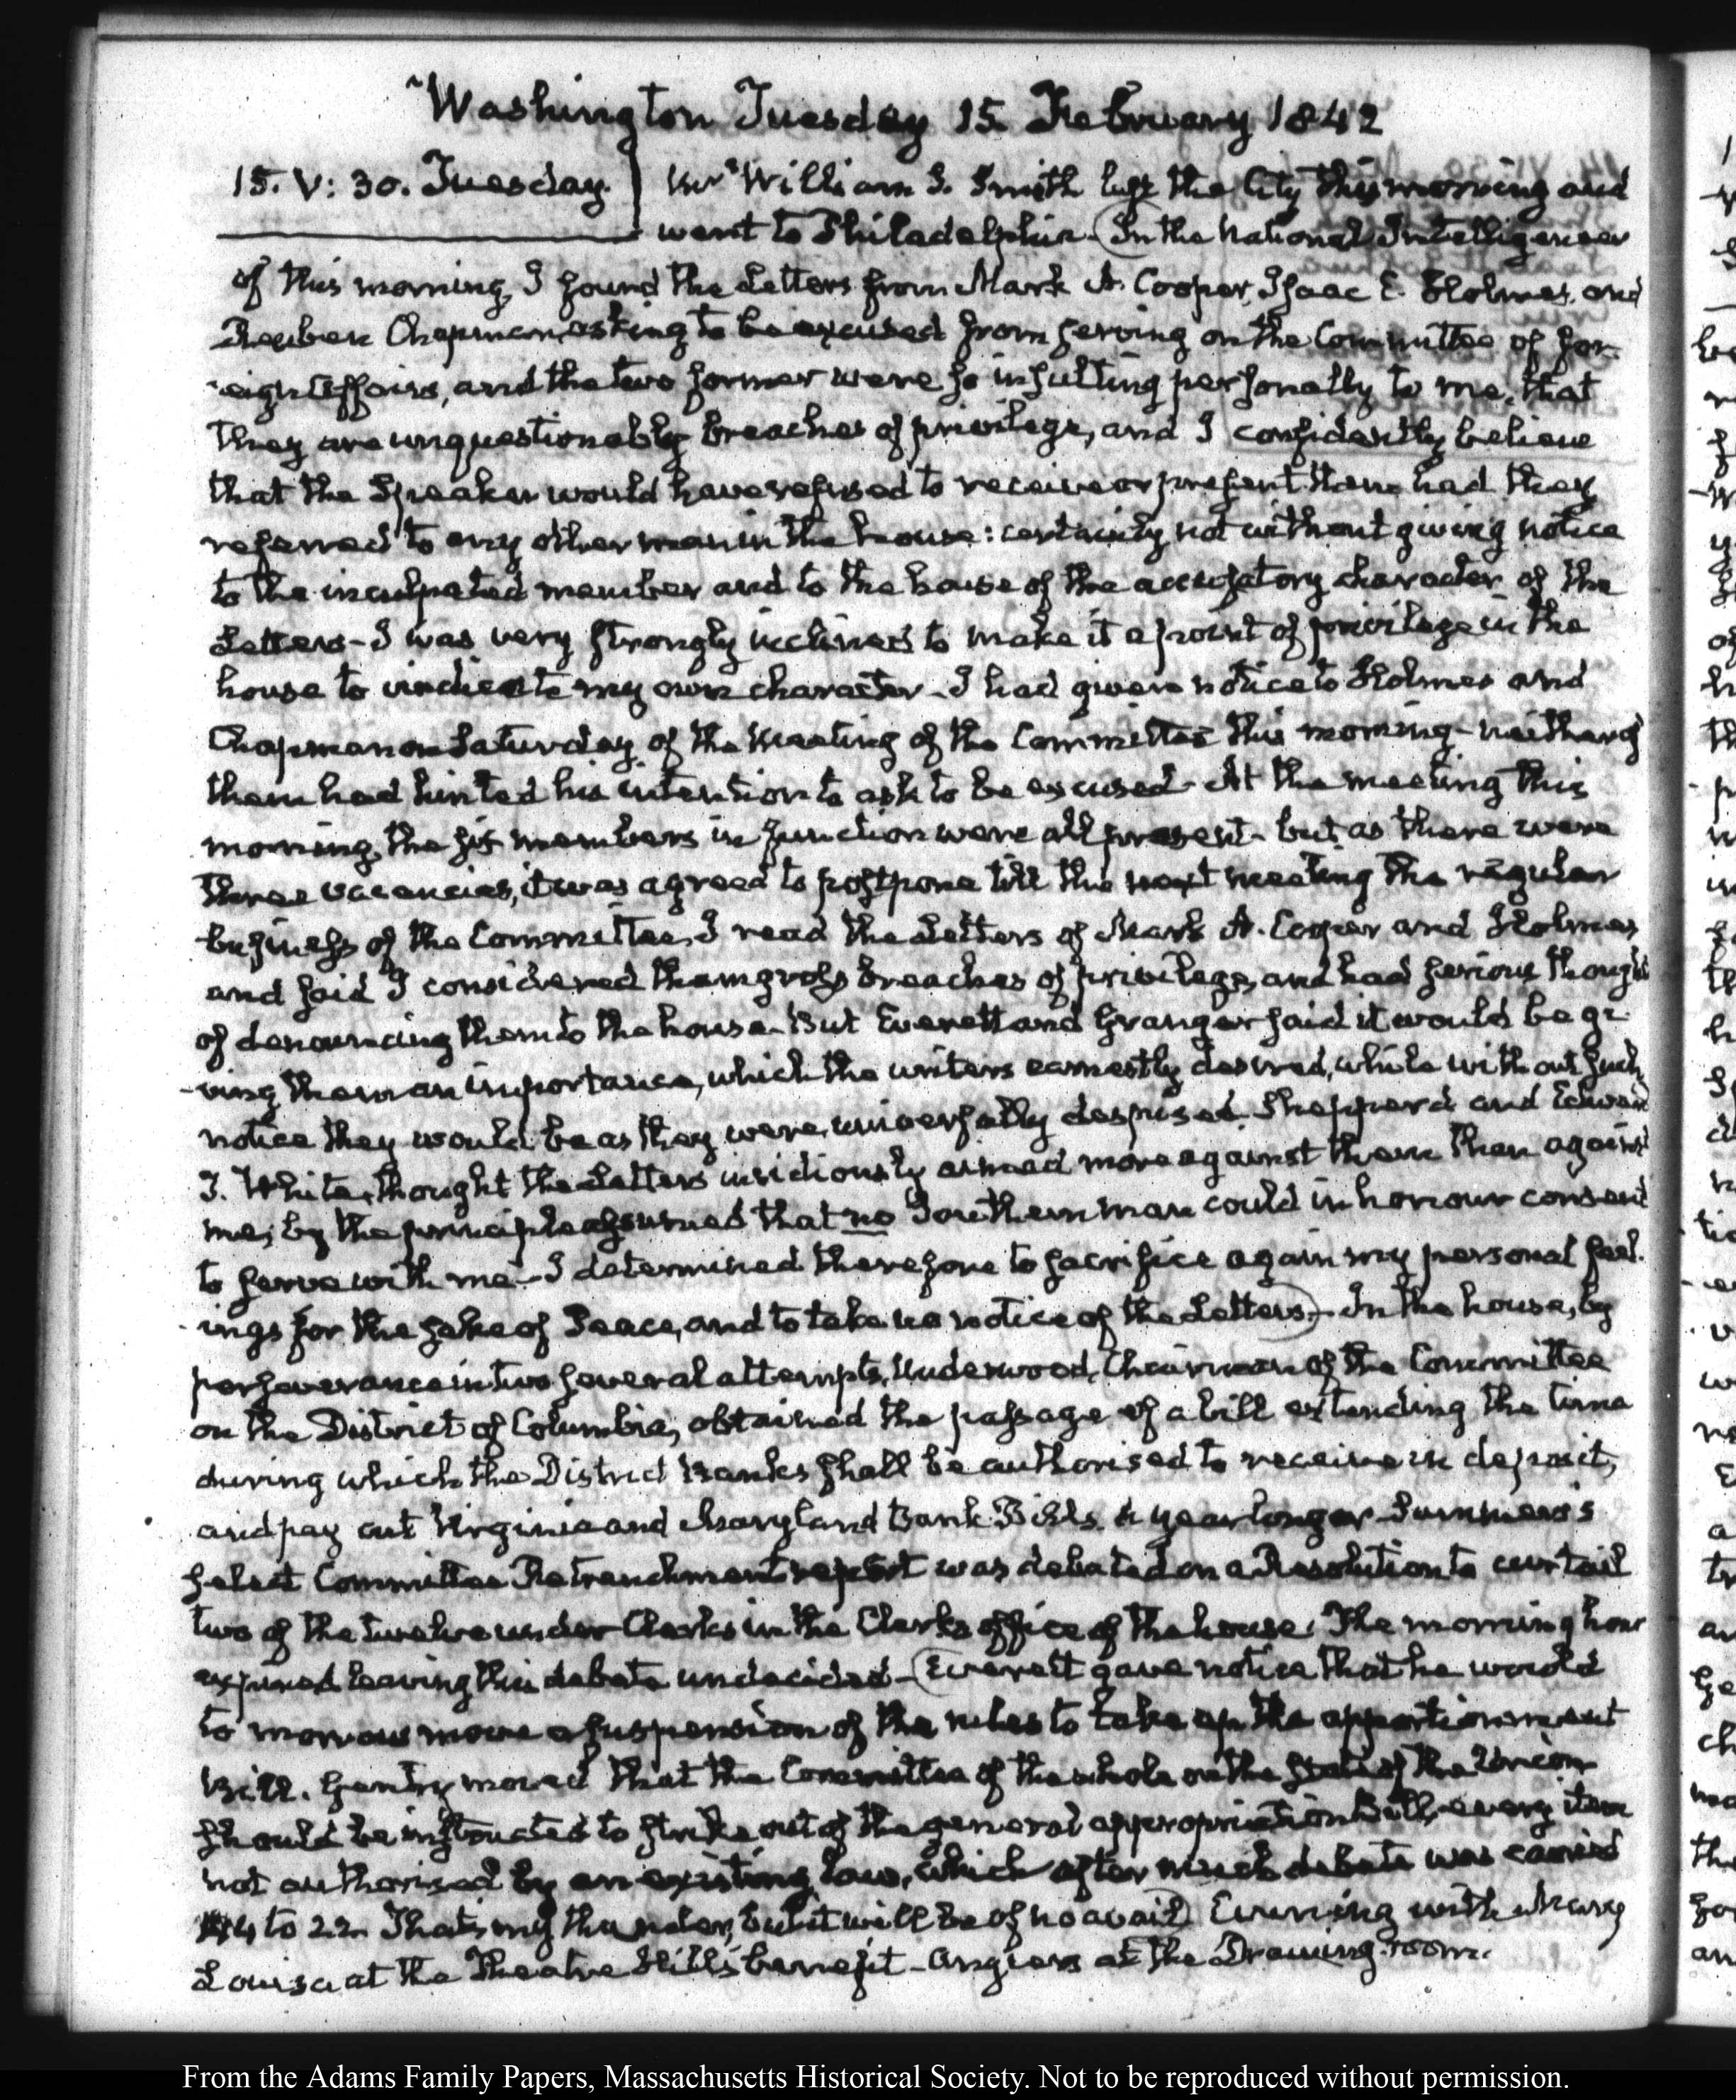 Washington Tuesday 15. February 1842
15. V: 30. Tuesday. Mrs William S. Smith left the City this morning and
went to Philadelphia. (In the National Intelligencer
of this morning, I found the Letters from Mark A. Cooper, Isaac E. Holmes, and
Reuben Chapman asking to be excused from serving on the Committee of For-
eign Affairs, and the two former were so insulting personally to me, that
they are unquestionably breaches of privilege, and I confidently believe
that the Speaker would have refused to receive or present them had they
referred to any other man in the house: certainly not without giving notice
to the inculpated member and to the house of the accusatory character of the
Letters – I was very strongly inclined to make it a point of privilege in the
house to vindicate my own character – I had given notice to Holmes and
Chapman on Saturday, of the meeting of the Committee this morning – neither of
them had hinted his intention to ask to be excused – At the meeting this
morning, the six members in function were all present – but as there were
three vacancies, it was agreed to postpone till the next meeting the regular
business of the Committee. I read the Letters of Mark A. Cooper and Holmes
and said I considered them gross breaches of privilege, and had serious thoughts
of denouncing them to the house – But Everett and Granger said it would be gi-
-ving them an importance, which the writers earnestly desired, while without such
notice they would be as they were, universally despised. Shepperd and Edward
J. White, thought the Letters insidiously aimed more against them than against
me; by the principle assumed that no Southern man could in honour consent
to serve with me – I determined therefore to sacrifice again my personal feel-
-ings for the sake of Peace, and to take no notice of the Letters) – In the house, by
perseverance in two several attempts, Underwood, Chairman of the Committee
on the District of Columbia, obtained the passage of a bill extending the time
during which the District Banks shall be authorised to receive in deposit,
and pay out Virginia and Maryland Bank Bills a year longer – Summers's
select Committee Retrenchment report was debated on a Resolution to curtail
two of the twelve under Clerks in the Clerks office of the house. The morning hour
expired leaving this debate undecided – (Everett gave notice that he would
to morrow move a suspension of the rules to take up the apportionment
Bill. Gentry moved that the Committee of the whole on the state of the Union
should be instructed to strike out of the general appropriation Bill every item
not authorised by an existing law, which after much debate was carried
to 22. That's my thunder, but it will be of no avail) Evening with Mary
Louisa at the Theatre Hill's benefit – Angiers at the Drawing-room.
From the Adams Family Papers, Massachusetts Historical Society. Not to be reproduced without permission.